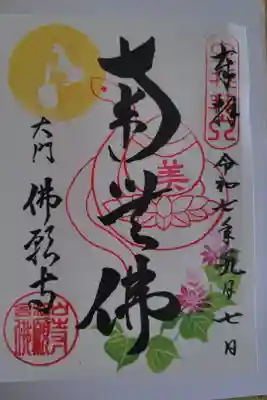 奉拝
令和七年九月七日
南無佛
美
大門
佛願寺